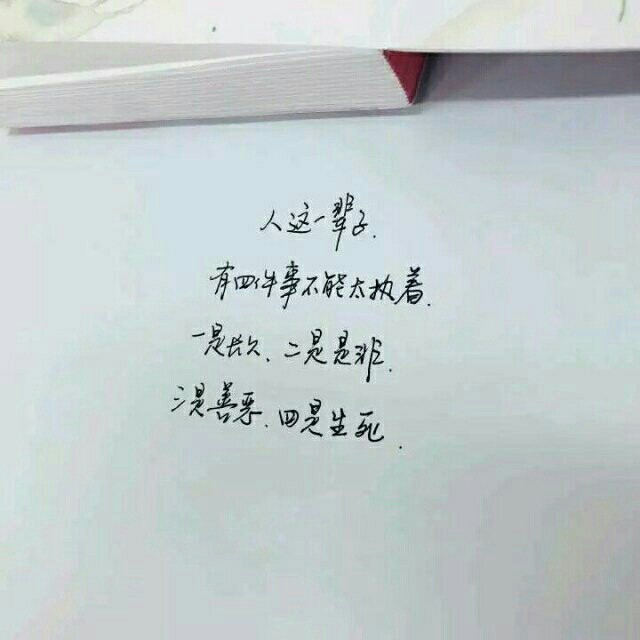 人这一辈子.
有四件事不能太执着.
一是长久、二是是非.
三是善恶、四是生死.